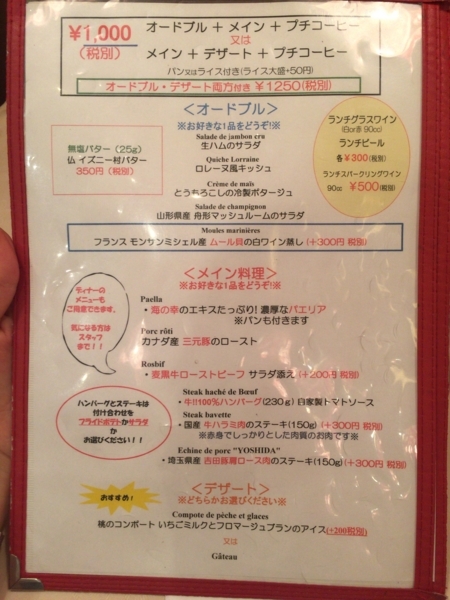 ¥1,000
(税別)
オードブル + メイン + プチコーヒー
又は
メイン + デザート + プチコーヒー
パン又はライス付き(ライス大盛+50円)
オードブル・デザート両方付き ¥1250(税別)
<オードブル>
※お好きな1品をどうぞ!※
無塩バター (25g)
仏 イズニー村バター
350円 (税別)
Salade de jambon cru
生ハムのサラダ
Quiche Lorraine
ロレーヌ風キッシュ
Crème de maïs
とうもろこしの冷製ポタージュ
Salade de champignon
山形県産 舟形マッシュルームのサラダ
Moules marinières
フランス モンサンミシェル産 ムール貝の白ワイン蒸し (+300円 税別)
ランチグラスワイン
(白or赤 90cc)
ランチビール
各¥300(税別)
ランチスパークリングワイン
90cc ¥500(税別)
<メイン料理>
※お好きな1品をどうぞ!※
ディナーの
メニューも
ご用意できます。
気になる方は
スタッフ
まで!!
Paella
・海の幸のエキスたっぷり! 濃厚なパエリア
※パンも付きます
Porc rôti
カナダ産 三元豚のロースト
Rosbif
・麦黒牛ローストビーフ サラダ添え (+200円 税別)
ハンバーグとステーキは
付け合わせを
フライドポテトかサラダ
か
お選びください!!
Steak haché de Bœuf
・牛!!100%ハンバーグ(230g) 自家製トマトソース
Steak bavette
・国産 牛ハラミ肉のステーキ(150g) (+300円 税別)
※赤身でしっかりとした肉質のお肉です※
Echine de porc "YOSHIDA"
・埼玉県産 吉田豚肩ロース肉のステーキ(150g)(+300円 税別)
おすすめ!
<デザート>
※どちらかお選びください※
Compote de pêche et glaces
桃のコンポート いちごミルクとフロマージュブランのアイス(+200税別)
又は
Gâteau